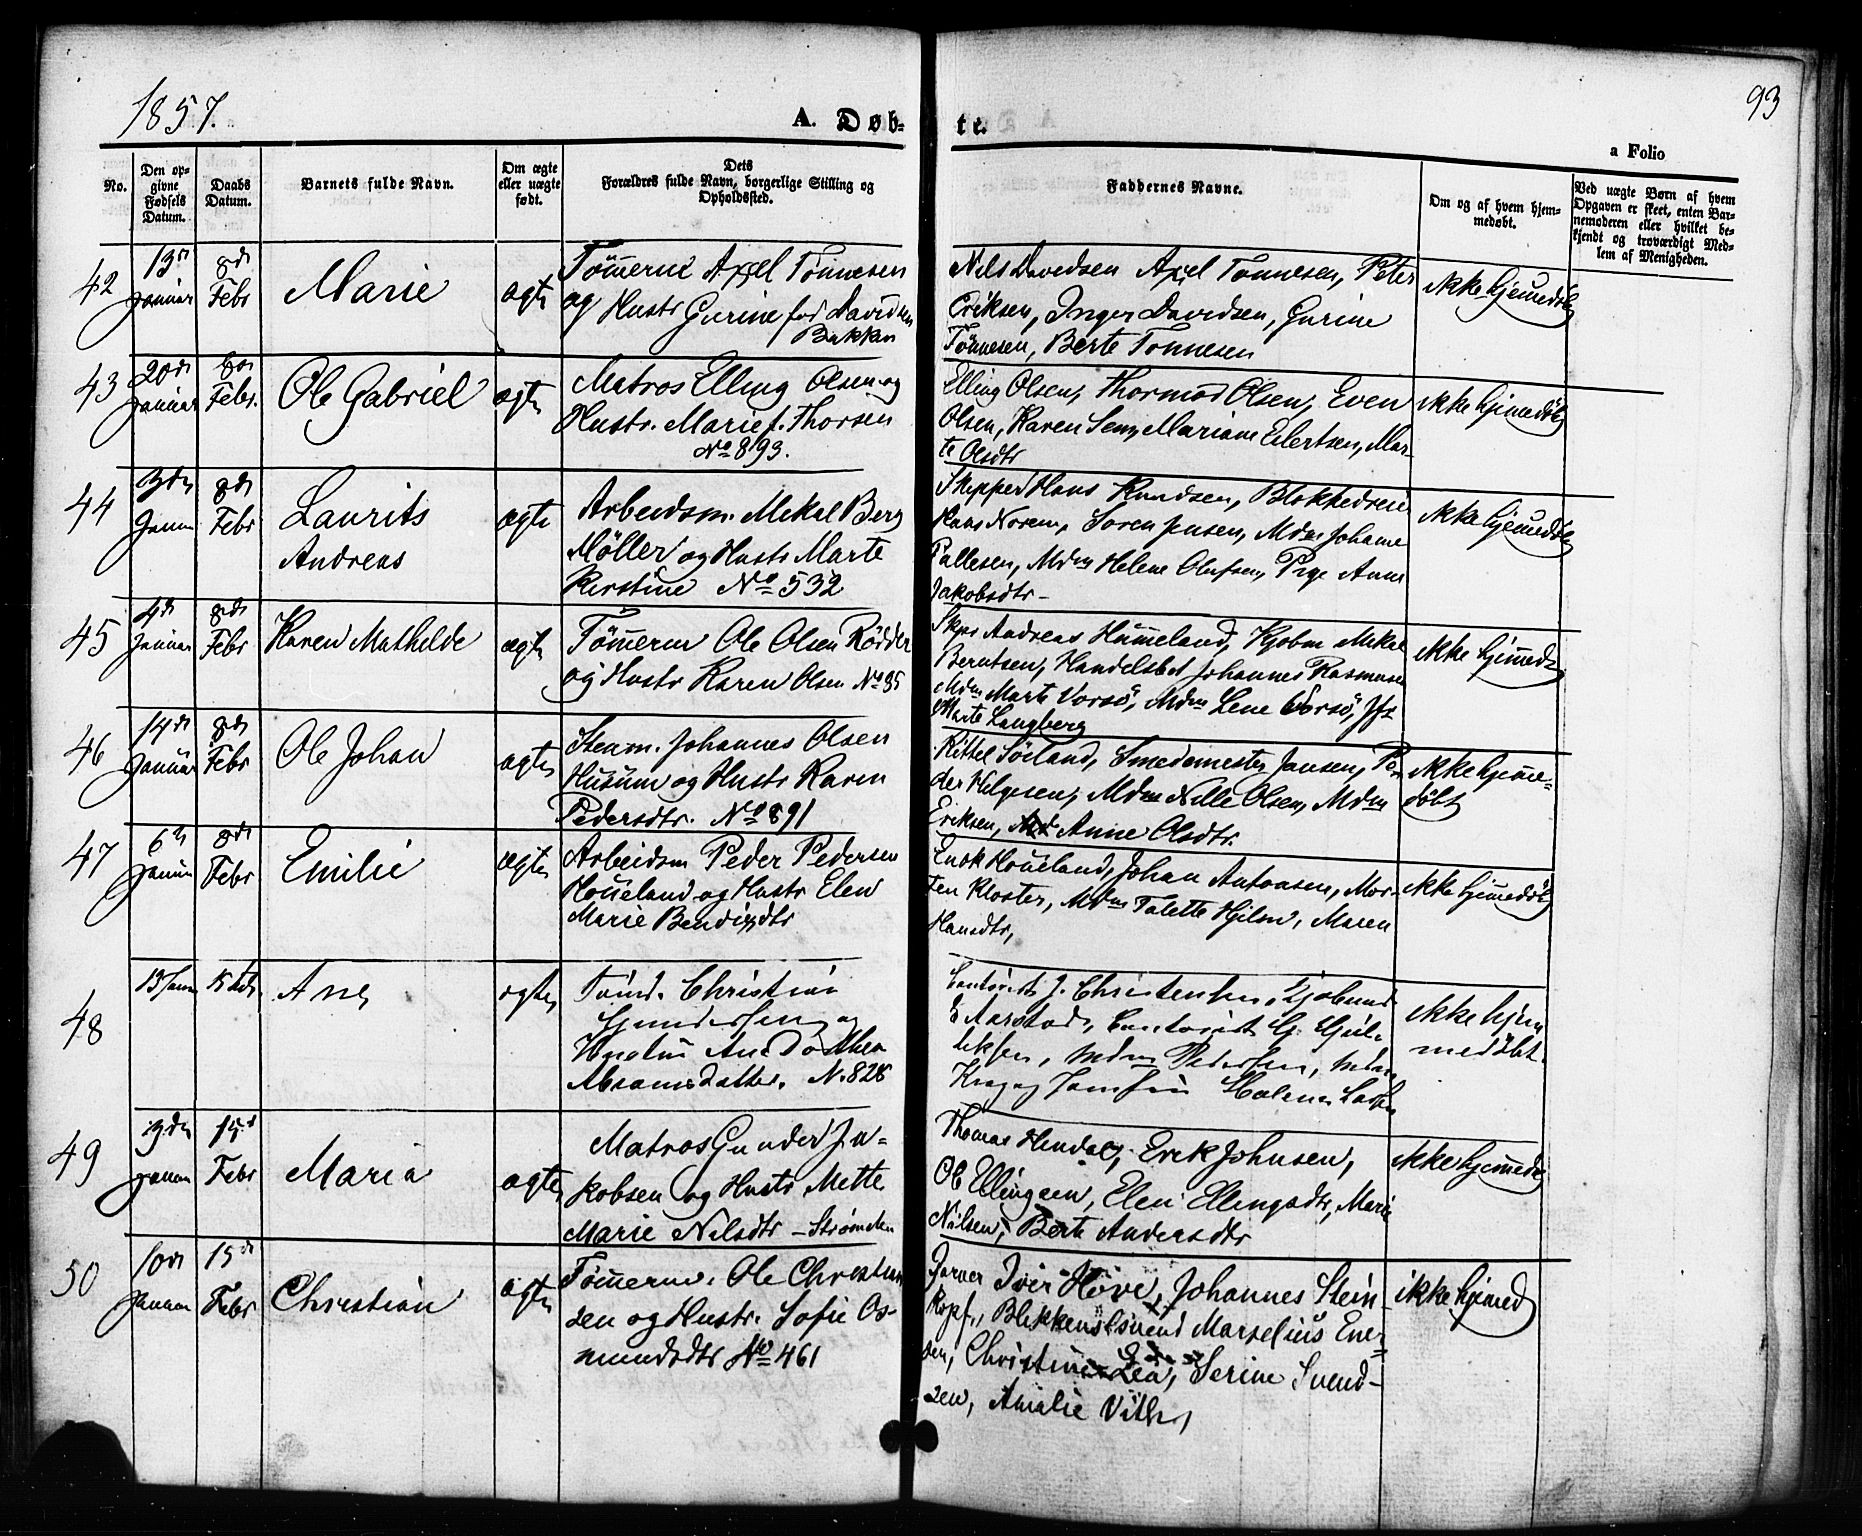 1857.
A. Døb-
te.
93
a Folio
No.
Den op-
givne
Fødsels
Datum.
Daabs
Datum.
Barnets fulde Navn.
Om ægte
eller uægte
født.
Dets
Forældres fulde Navn, borgerlige Stilling og
Opholdssted.
Faddernes Navne.
Om og af hvem hjem-
medøbt.
Ved uægte Børn af hvem
Opgaven er skeet, enten Bar-
nemoderen eller hvilket be-
kjendt og troværdigt Med-
lem af Menigheden.
42
13de
Januar
8de
Febr
Marie
ægte
Tømmerm Axel Tønnesen
og Hustr Gurine fød Davidsen
Bakken
Nils Davidsen Axel Tønnesen, Peter
Eriksen, Inger Davidsen, Gurine
Tønnesen, Berte Tonnesen
ikke hjemedøbt
43
20de
Januar
Febr.
Ole Gabriel
ægte
Matros Elling Olsen og
Hustr. Marie f. Thorsen
No 893.
Elling Olsen, Thormod Olsen, Even
Olsen, Karen Mariane Eilertsen, Mar-
te Olsdtr
ikke hjemedøbt
44
3de
Januar
8de
Febr
Laurits
Andreas
ægte
Arbeidsm. Mekal Berg
Møller og Hustr Marte
Kerstine No 532
Skipper Hans Knudsen,
Hans Norem, Soren Jensen, Mdm Johanne
Pallesen, Mdm Helene Olufsen, Pige Anne
Jakobsdtr –
ikke hjemedøbt
45
4de
Januar
8de
Febr
Karen Mathilde
ægte
Tømmerm Ole Olsen Rödder
og Hustr Karen Olsen No 35
Skpr Andreas Hummeland, Kjobm Mekal
Berntsen, Handelsbet Johannes Rasmusen
Mdm Marte Vorsø, Mdm Lene Vorsø, Jfr
Marte Langberg
ikke hjemmedøbt
46
14de
Januar
8de
Febr
Ole Johan
ægte
Stenm. Johannes Olsen
Husum og Hustr Karen
Pedersdtr. No 891
Kittel Söiland, Smedemester Jansen, Pe-
der Helgesen, Mdm Nille Olsen, Mdm
Eriksen, Anne Olsdtr.
ikke hjemme-
døbt
47
6te
Januar
8de
Febr
Emilie
ægte
Arbeidsm Peder Pedersen
Houeland og Hustr Elen
Marie Bendixsdtr
Enok Houeland, Johan Antonsen, Mor-
ten Kloster, Mdm Talette Hjelm, Maren
Hansdtr,
ikke hjemedøbt
48
13 Janu
15 Feb.
Ane
ægte
Christian
Gundersen og
Hustru Ane Dorthea
Abramsdatter. N. 828
J. Christensen, Kjøbmd
E Aarstad,
Mdm Pedersen, Mdm
Krog og Jomfru
ikke hjem
medøbt.
49
3de
Januar
15d
Febr
Maria
ægte
Matros Gunder Ja-
kobsen og Hustr Mette
Marie Nilsdtr – Strømsten
Thomas Hindal, Erik Johnsen,
Ole Ellingsen, Elen Ellingsdtr, Marie
Nilsen, Berte Andersdtr
ikke hjemmedøbt
50
10de
Januar
15de
Febr
Christian
ægte
Tømmerm. Ole Christian
sen og Hustr. Sofie Os-
mundsdtr No 461
Garver Iver Høve, Johannes Stein-
kopf, Blikkenslsvend Marselius Ene-
sen, Christine Lea, Serine Svend-
sen, Amalie
ikke hjemed